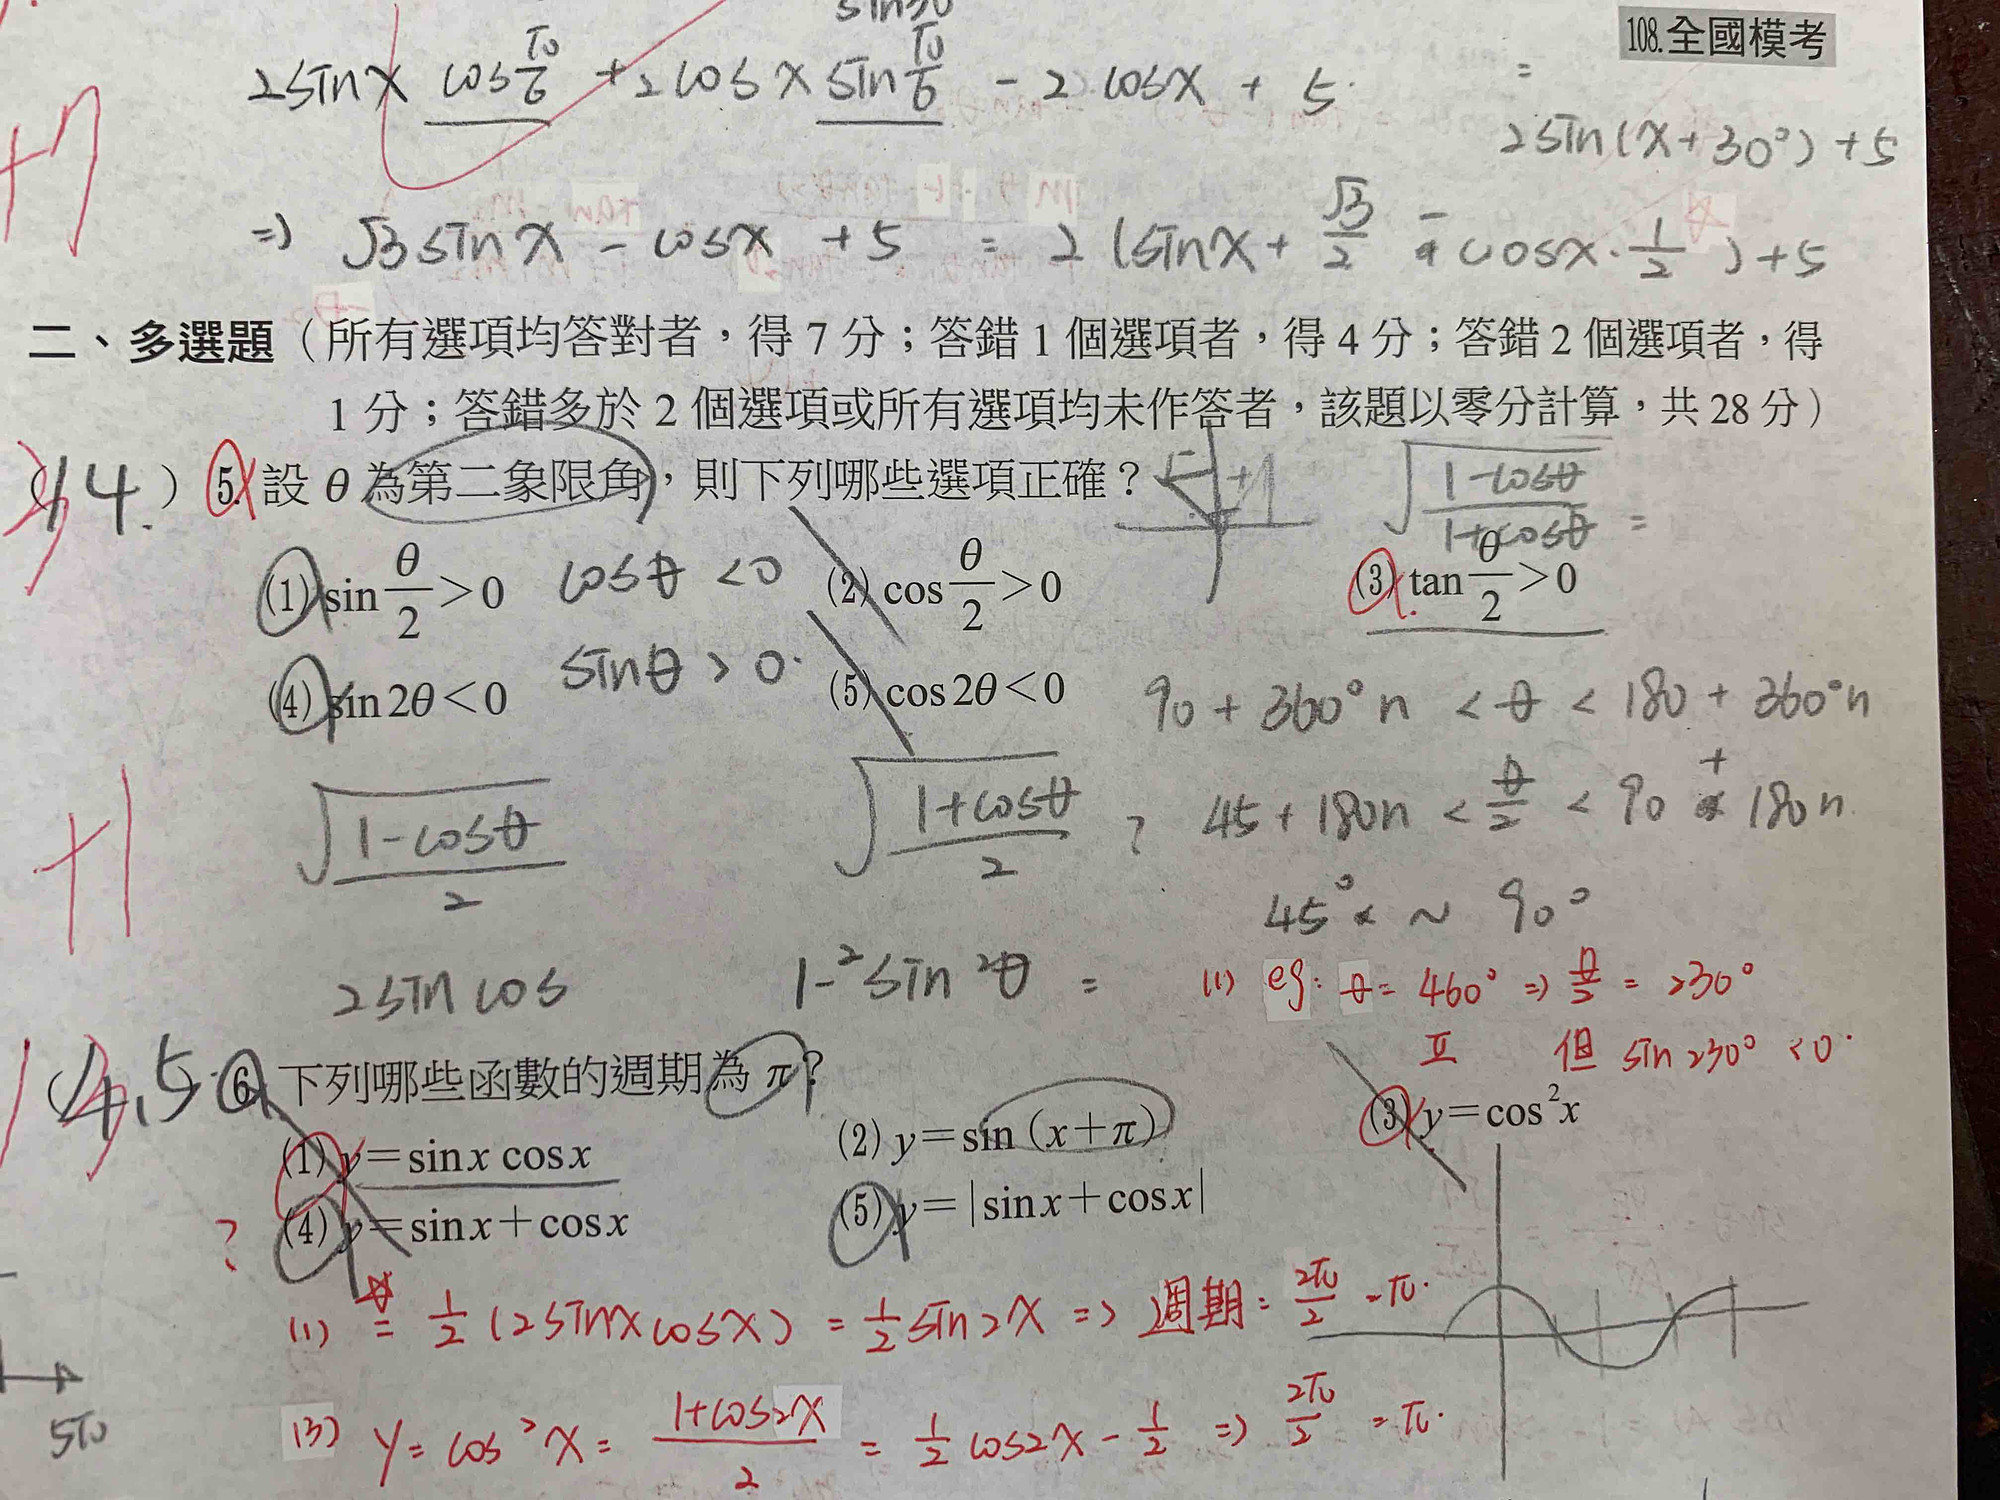 sin30
108.全國模考
2sinx cos π/6 + 2cosx sin π/6 - 2cosx + 5
=
2sin(x+30°)+5
+7
=> √3sinx - cosx + 5 = 2(sinx + √3/2 - cosx·1/2)+5
二、多選題（所有選項均答對者，得 7 分；答錯 1 個選項者，得 4 分；答錯 2 個選項者，得
1 分；答錯多於 2 個選項或所有選項均未作答者，該題以零分計算，共 28 分）
（14.）5. 設 θ 為第二象限角，則下列哪些選項正確？
34
√((1-cosθ)/(1+cosθ)) =
(1) sin θ/2 > 0 cosθ < 0 (2) cos θ/2 > 0 (3) tan θ/2 > 0
(4) sin2θ < 0 sinθ > 0 (5) cos2θ < 0
90 + 360°n < θ < 180 + 360°n
√((1-cosθ)/2) √((1+cosθ)/2) ? 45 + 180n < θ/2 < 90 + 180n
+1
45° ~ 90°
2sin cos 1-2sin²θ =
(1) eg: θ = 460° => θ/2 = 230°
II 但 sin230° < 0
（4,5 6. 下列哪些函數的週期為 π？
(1) y=sinx cosx (2) y=sin（x+π） (3) y=cos²x
? (4) y=sinx+cosx (5) y=|sinx+cosx|
(1) = 1/2 (2sinxcosx) = 1/2 sin2x => 週期 = 2π/2 = π
5π
(3) y = cos²x = (1+cos2x)/2 = 1/2 cos2x - 1/2 => 2π/2 = π